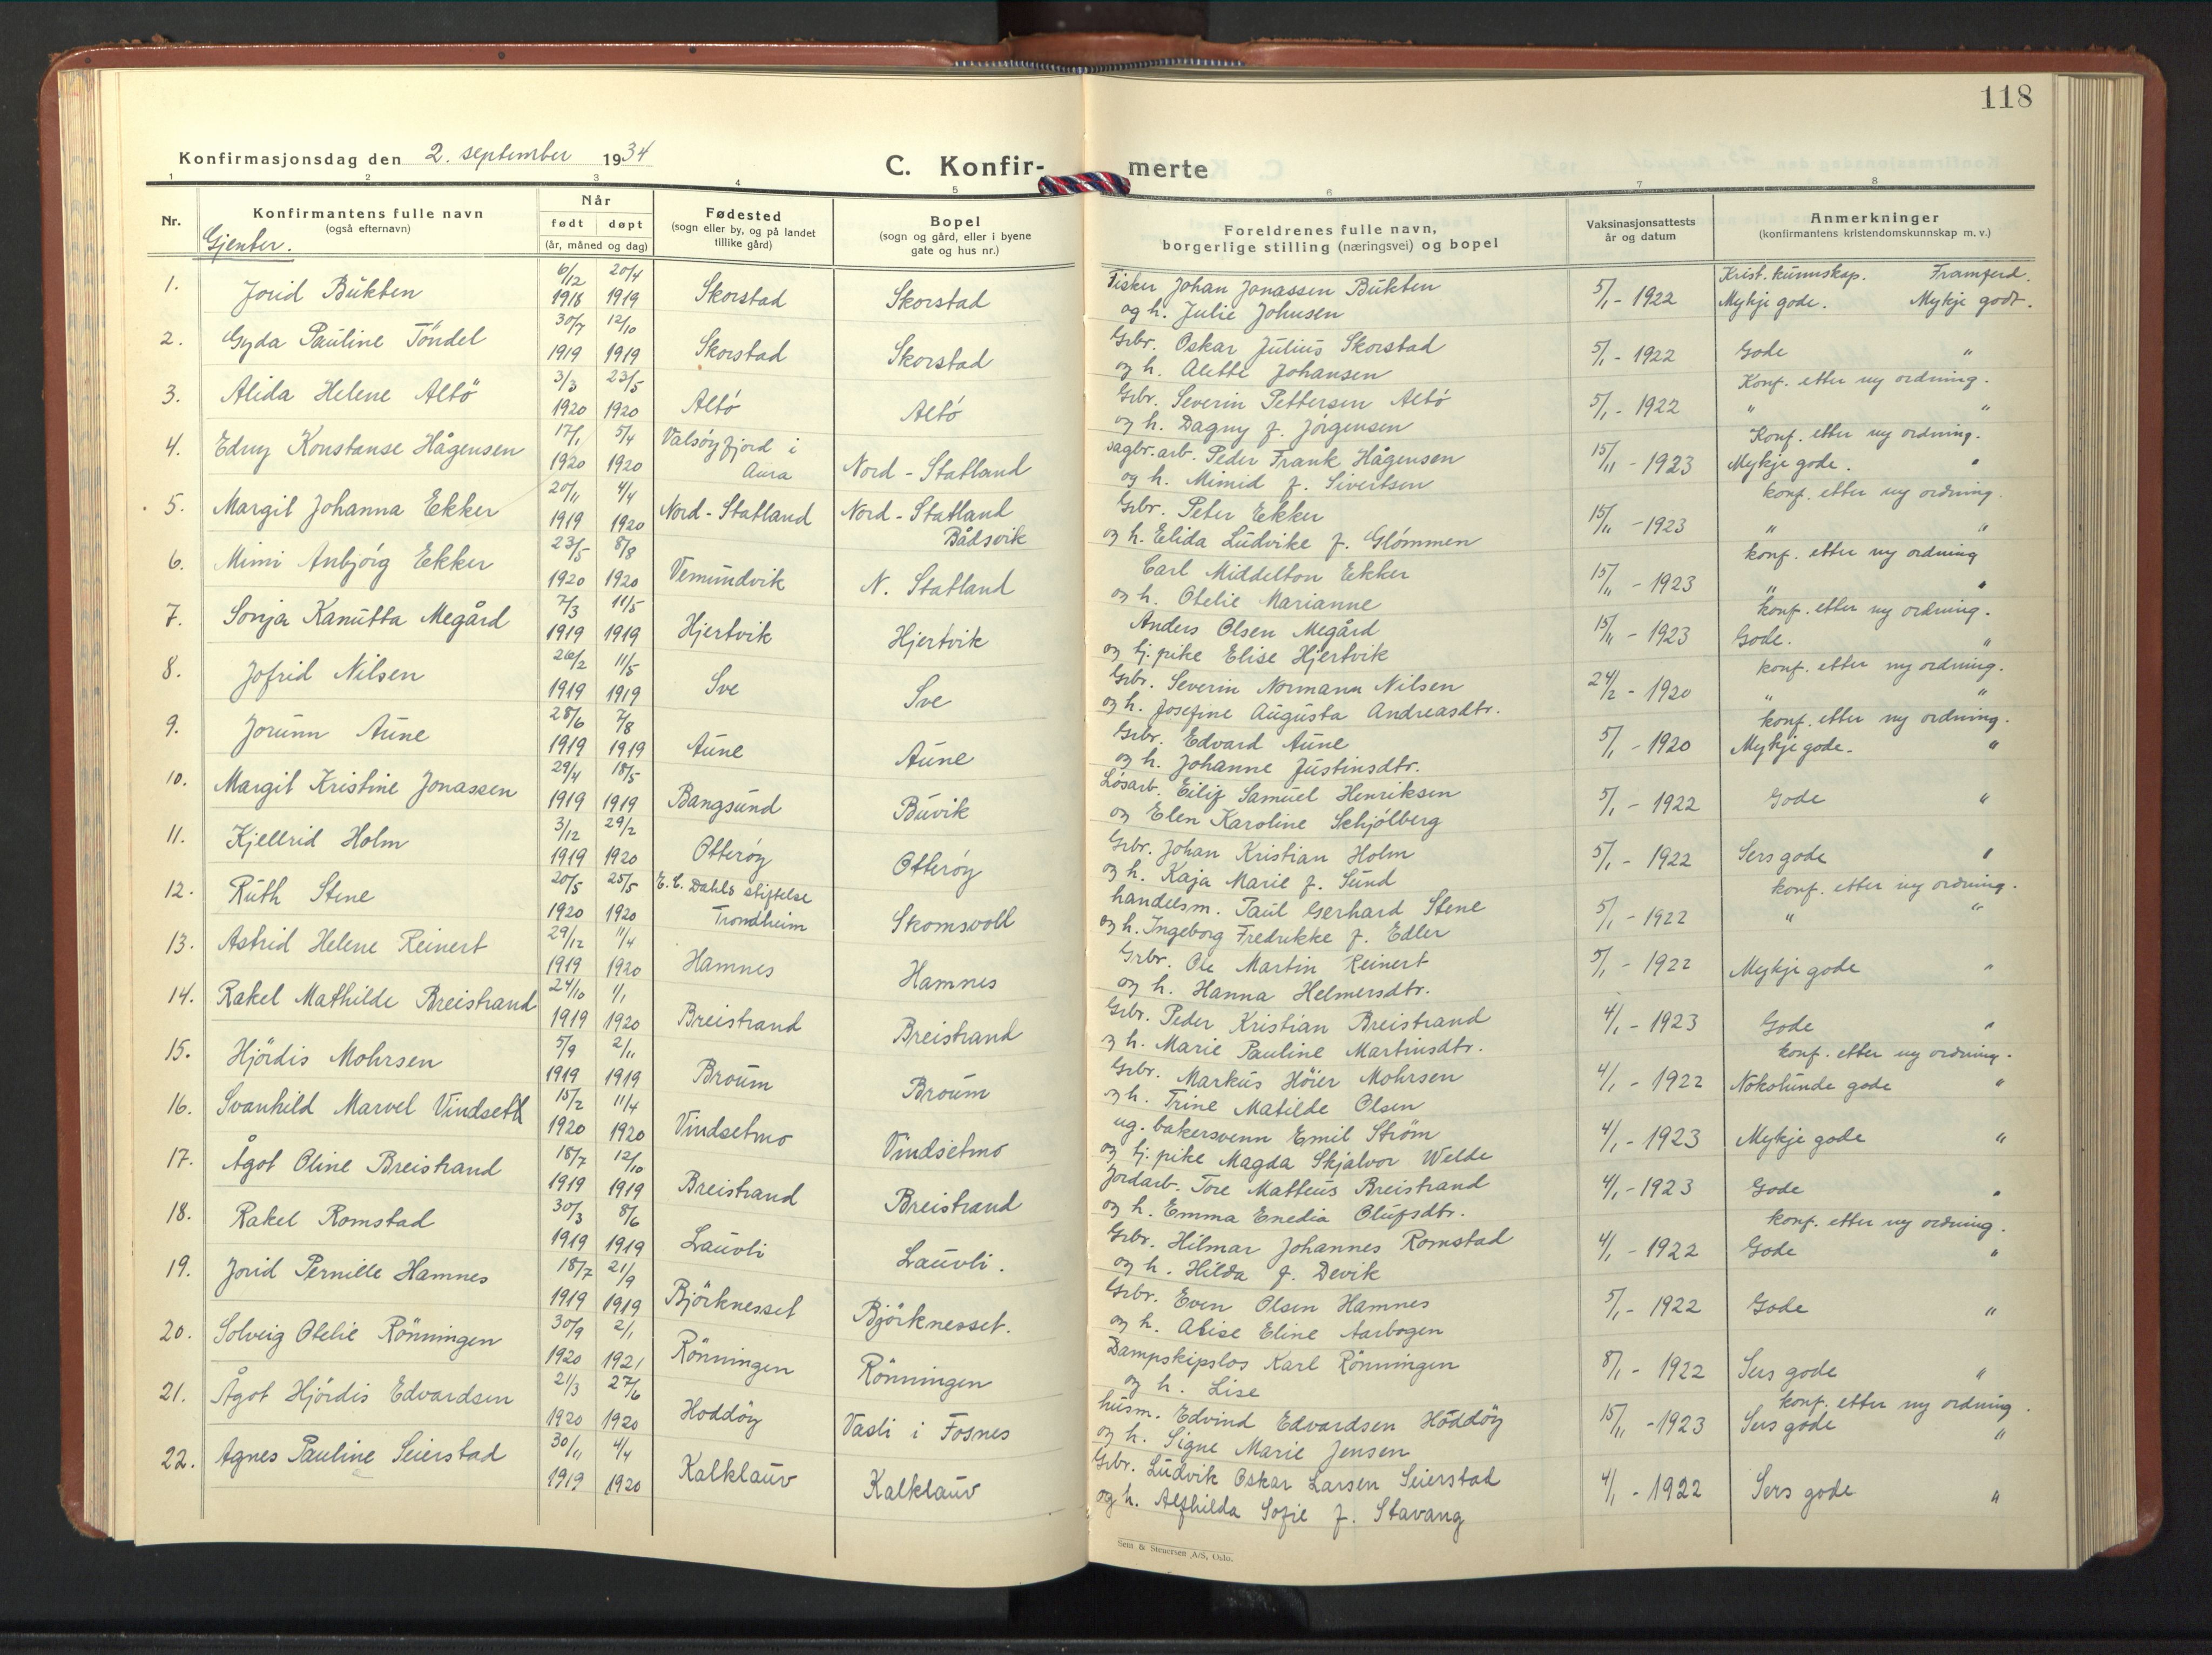 118
Konfirmasjonsdag den 2. september 1934
C. Konfir- merte
1 2 3 4 5 6 7 8
Nr.
Konfirmantens fulle navn
(også efternavn)
Når
født døpt
(år, måned og dag)
Fødested
(sogn eller by, og på landet
tillike gård)
Bopel
(sogn og gård, eller i byene
gate og hus nr.)
Foreldrenes fulle navn,
borgerlige stilling (næringsvei) og bopel
Vaksinasjonsattests
år og datum
Anmerkninger
(konfirmantens kristendomskunnskap m. v.)
Gjenter.
Krist. kunnskap. Framferd.
1. Jorid Bukten 6/12 1918 20/4 1919 Skorstad Skorstad Fisker Johan Jonassen Bukten
og h. Julie Johnsen 5/1 - 1922 Mykje gode. Mykje godt.
2. Gyda Pauline Töndel 30/7 1919 12/10 1919 Skorstad Skorstad Grbr. Oskar Julius Skorstad
og h. Alette Johansen 5/1 - 1922 Gode "
Konf. etter ny ordning.
3. Alida Helene Altö 3/3 1920 23/5 1920 Altö Altö Grbr. Severin Pettersen Altö
og h. Dagny f. Jörgensen 5/1 - 1922 " "
Konf. etter ny ordning.
4. Edny Konstanse Hågensen 17/1 1920 5/4 1920 Valsöyfjord i
Aura Nord - Statland Sagbr. arb. Peder Frank Hågensen
og h. Mimid f. Sivertsen 15/11 - 1923 Mykje gode. "
konf. etter ny ordning.
5. Margit Johanna Ekker 20/11 1919 4/4 1920 Nord - Statland Nord - Statland
Bådsvik Grbr. Peter Ekker
og h. Elida Ludvike f. Glömmen 15/11 - 1923 " "
konf. etter ny ordning
6. Mimi Anbjörg Ekker 23/5 1920 8/8 1920 Vemundvik N. Statland Carl Middelton Ekker
og h. Otelie Marianne 15/11 - 1923 " "
konf. etter ny ordning.
7. Sonja Kanutta Megård 7/3 1919 11/5 1919 Hjertvik Hjertvik Anders Olsen Megård
og tj. pike Elise Hjertvik 15/11 - 1923 Gode. "
konf. etter ny ordning.
8. Jofrid Nilsen 26/2 1919 11/5 1919 Sve Sve Grbr. Severin Normann Nilsen
og h. Josefine Augusta Andreasdtr. 24/2 - 1920 " "
konf. etter ny ordning.
9. Jorunn Aune 28/6 1919 7/8 1919 Aune Aune Grbr. Edvard Aune
og h. Johanne Justinsdtr. 5/1 - 1920 Mykje gode. "
10. Margit Kristine Jonassen 29/4 1919 18/5 1919 Bangsund Buvik Lösarb. Eilif Samuel Henriksen
og Elen Karoline Schjölberg 5/1 - 1922 Gode "
11. Kjellrid Holm 3/12 1919 29/2 1920 Otteröy Otteröy Grbr. Johan Kristian Holm
og h. Kaja Marie f. Sund 5/1 - 1922 Sers gode "
konf. etter ny ordning.
12. Ruth Stene 20/5 1920 25/5 1920 E. C. Dahls stiftelse
Trondheim Skomsvoll handelsm. Paul Gerhard Stene
og h. Ingeborg Fredrikke f. Edler 5/1 - 1922 " "
13. Astrid Helene Reinert 29/12 1919 11/4 1920 Hamnes Hamnes Grbr. Ole Martin Reinert
og h. Hanna Helmersdtr. 5/1 - 1922 Mykje gode "
14. Rakel Mathilde Breistrand 24/10 1919 1/1 1920 Breistrand Breistrand Grbr. Peder Kristian Breistrand
og h. Marie Pauline Martinsdtr. 4/1 - 1923 Gode "
konf. etter ny ordning.
15. Hjördis Mohrsen 5/9 1919 2/11 1919 Broum Broum Grbr. Markus Höier Mohrsen
og h. Trine Matilde Olsen 4/1 - 1922 Nokolunde gode "
16. Svanhild Marvel Vindseth 15/2 1920 11/4 1920 Vindsetmo Vindsetmo ug. bakersvenn Emil Ström
og tj. pike Magda Skjalvor Welde 4/1 - 1923 Mykje gode "
17. Ågot Oline Breistrand 18/7 1919 12/10 1919 Breistrand Breistrand Jordarb. Tore Matteus Breistrand
og h. Emma Enedia Olufsdtr. 4/1 - 1923 Gode "
konf. etter ny ordning.
18. Rakel Romstad 30/3 1919 8/6 1919 Lauvli Lauvli. Grbr. Hilmar Johannes Romstad
og h. Hilda f. Devik 4/1 - 1922 Gode "
19. Jorid Pernille Hamnes 18/7 1919 21/9 1919 Björknesset Björknesset. Grbr. Even Olsen Hamnes
og h. Alise Eline Aarbogen 5/1 - 1922 Gode "
20. Solveig Otelie Rönningen 30/9 1920 2/1 1921 Rönningen Rönningen Dampskipslos Karl Rönningen
og h. Lise 8/1 - 1922 Sers gode "
konf. etter ny ordning.
21. Ågot Hjördis Edvardsen 21/3 1920 27/6 1920 Hoddöy Vasli i Fosnes husm. Edvind Edvardsen Hoddöy
og h. Signe Marie Jensen 15/11 - 1923 Sers gode "
22. Agnes Pauline Seierstad 30/11 1919 4/4 1920 Kalklauv Kalklauv Grbr. Ludvik Oskar Larsen Seierstad
og h. Alfhilda Sofie f. Stavang 4/1 - 1922 Sers gode "
Sem & Stenersen A/S, Oslo.